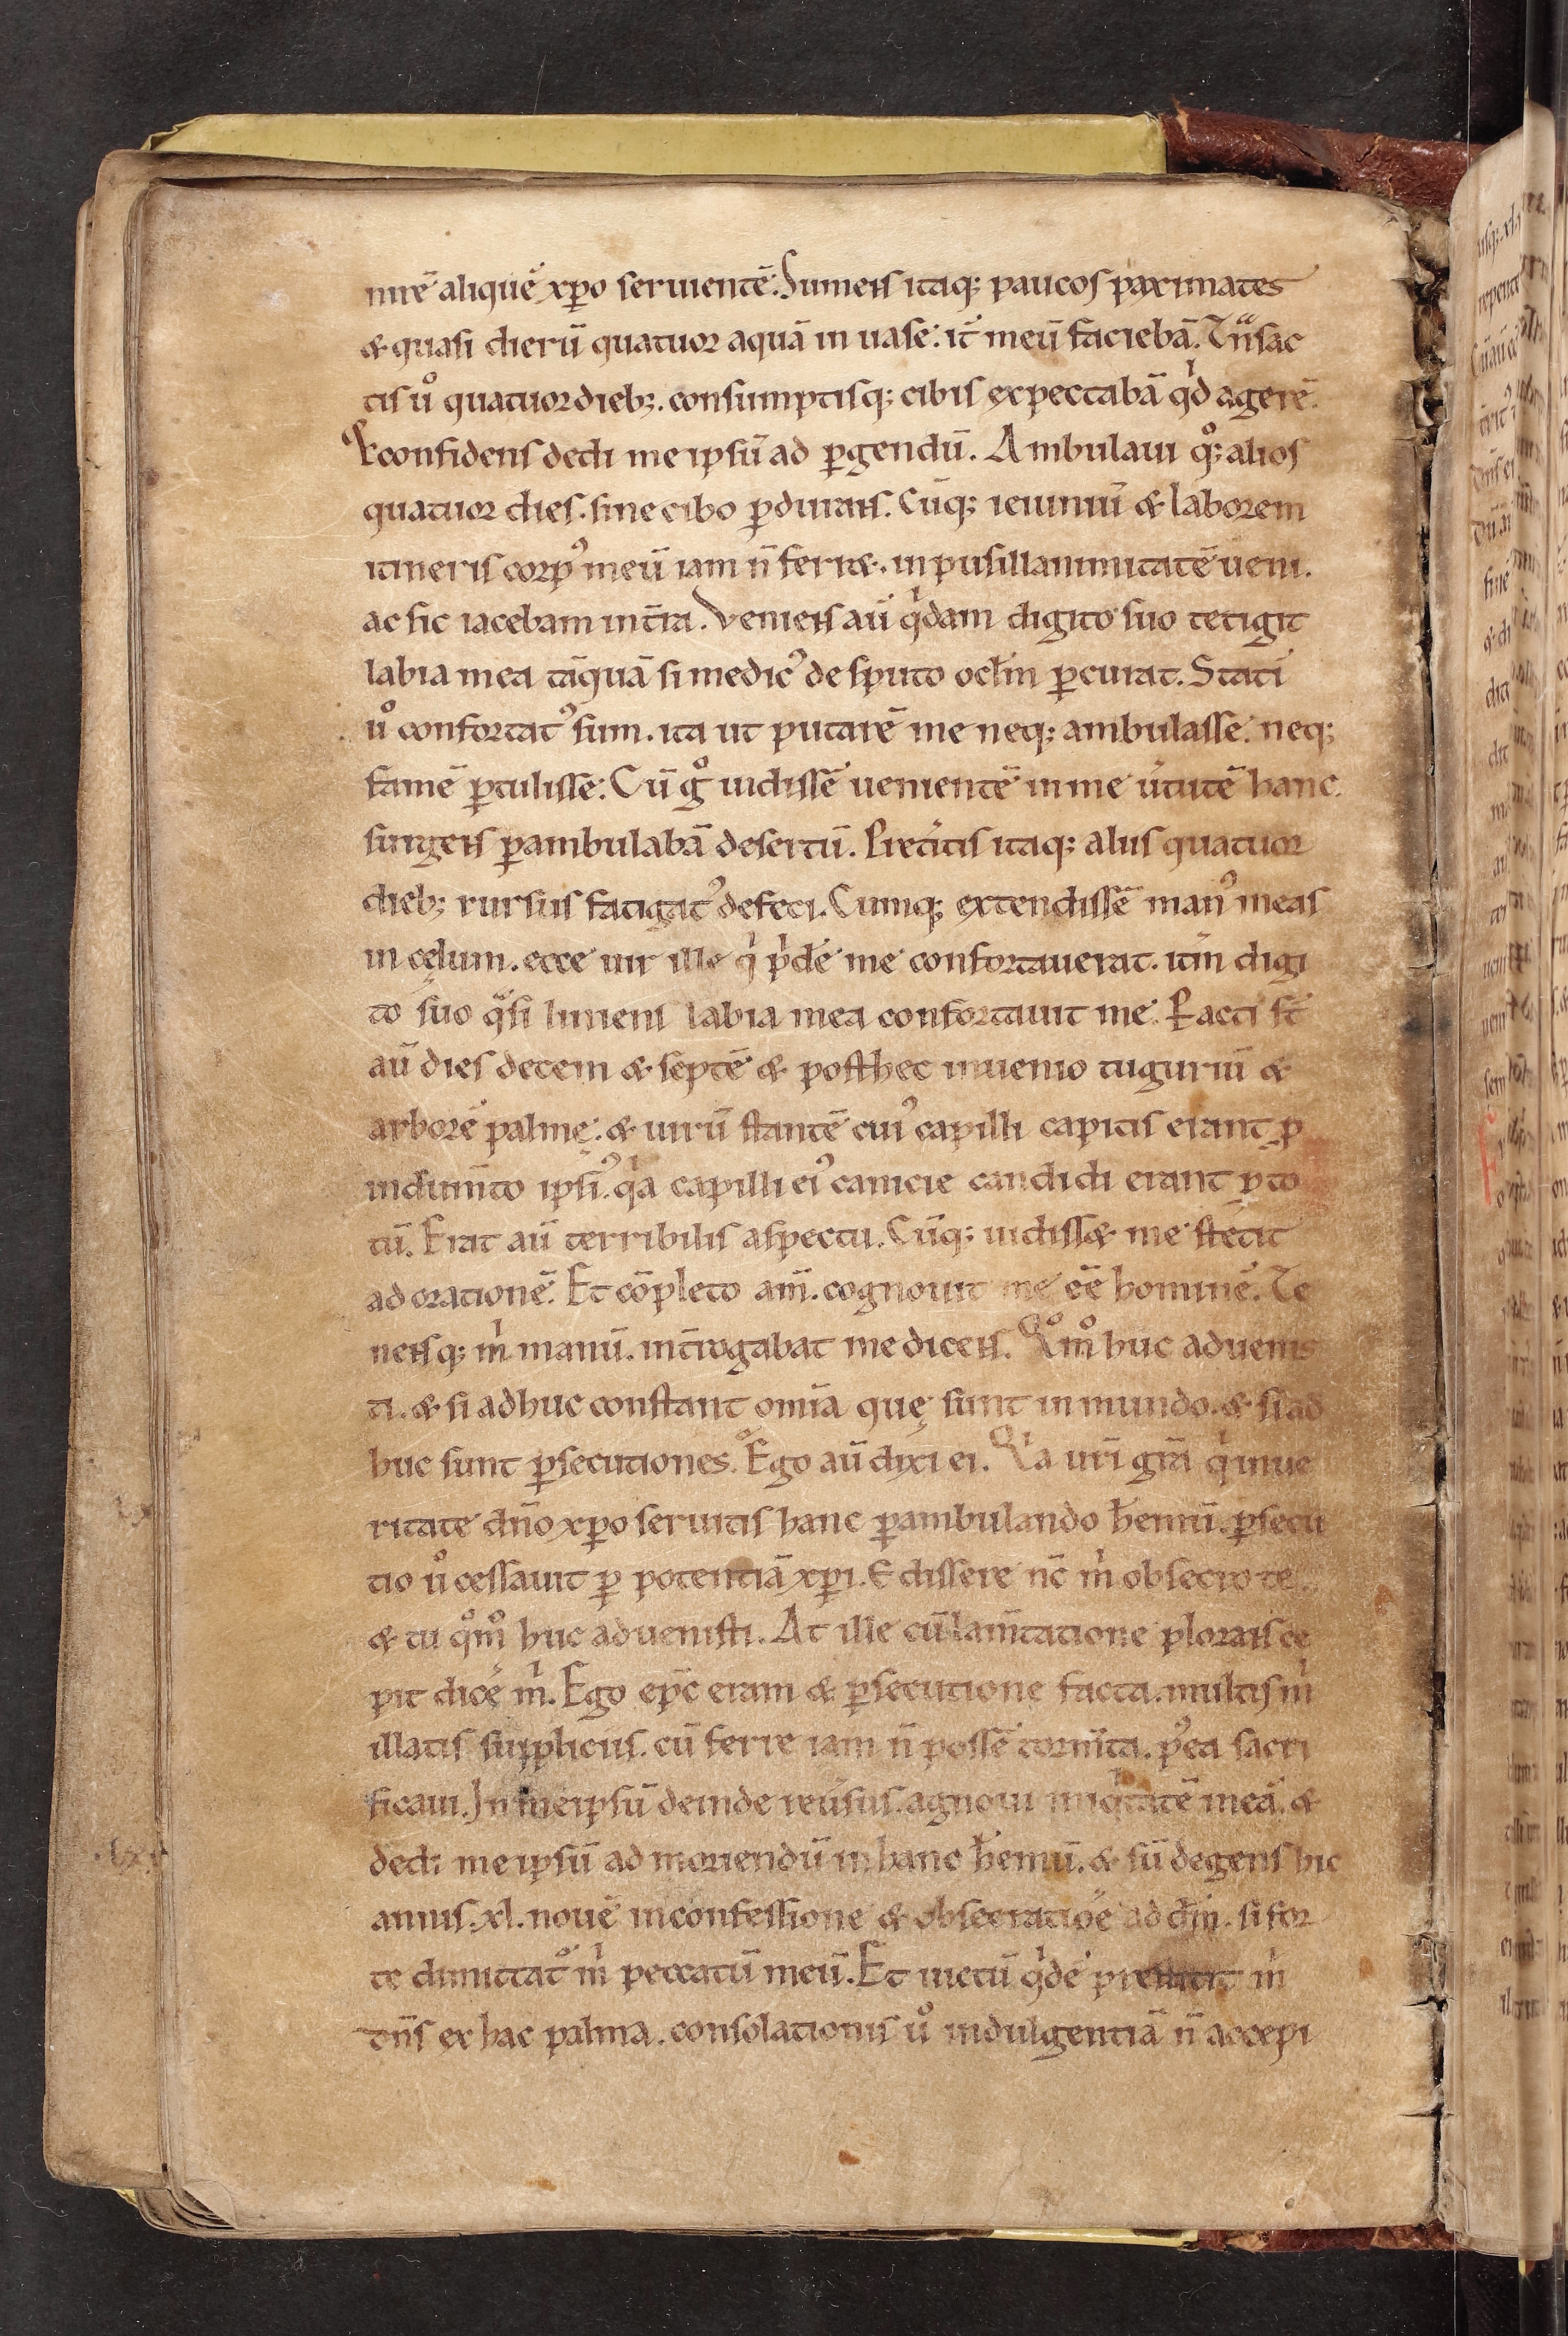 nirē aliquē xpo seruientē. Sumens itaq; paucos paximates
& quasi dierū quatuor aquā in uase. it̄ meū faciebā. Tͣnsac
tis u̾ quatuor dieb;. consumptisq; cibis expectabā qͥd agerē.
& confidens dedi me ipsū ad ꝑgendū. Ambulaui qͦ; alios
quatuor dies. sine cibo ꝑdurans. Cūq; ieiuniū & laborem
itineris corpꝰ meū iam n̄ ferret. in pusillanimitatē ueni.
ac sic iacebam in t̄ra. Veniens aū qͥdam digito suo tetigit
labia mea tāquā si medicꝰ de sputo oclm̄ ꝑcurat. Statī
uͦ confortatꝰ sum. ita ut putarē me neq; ambulasse. neq;
famē ꝑtulisse. Cū gͦ uidissē uenientē in me u̾tutē hanc.
surgens ꝑambulabā desertū. Pret̾itis itaq; aliis quatuor
dieb; rursus fatigatꝰ defeci. Cumq; extendissē manꝰ meas
in cęlum. ecce uir ille qͥ pͥdē me confortauerat. itm̄ digi
to suo qͣsi liniens labia mea confortauit me. Facti st̄
aū dies decem & septē & posthec inuenio tuguriū &
arborē palmę. & uirū stantē cuiꝰ capilli capitis erant ꝓ
indum̄to ipsiꝰ. qͥa capilli eiꝰ canicie candidi erant ꝓ to
tū. Erat aū terribilis aspectu. Cūq; uidiss& me stetit
ad orationē. Et cōpleto am̄. cognouit me eē hominē. Te
nensq; mͥ manū. int̄rogabat me dicens. Qͦmͦ huc aduenis
ti. & si adhuc constant omīa quę sunt in mundo. & si ad
huc sunt ꝑsecutiones. Ego aū dixi ei. Qͥa ur̄i gr̄a qͥ in ue
ritate dn̄o xpo seruitis hanc ꝑambulando h̄emū. ꝑsecu
tio uͦ cessauit ꝑ potentiā xpi. Edissere nc̄ mͥ obsecro te
& tu qͦmͦ huc aduenisti. At ille cū lam̄tatione plorans ce
pit dicē mͥ. Ego ep̄c eram & ꝑsecutione facta. multis mͥ
illatis suppliciis. cū ferre iam n̄ possē torm̄ta. pꝰea sacri
ficaui. In meipsū deinde reu̾sus. agnoui iniqͥtatē meā. &
dedi me ipsū ad moriendū in hanc h̄emū. & sū degens hic
annis. xl. nouē in confessione & obsecratiōe ad dm̄. si for
te dimittat᷑ mͥ peccatū meū. Et uictū qͥdē prestitit mͥ
dn̄s ex hac palma. consolationis uͦ indulgentiā n̄ accepi